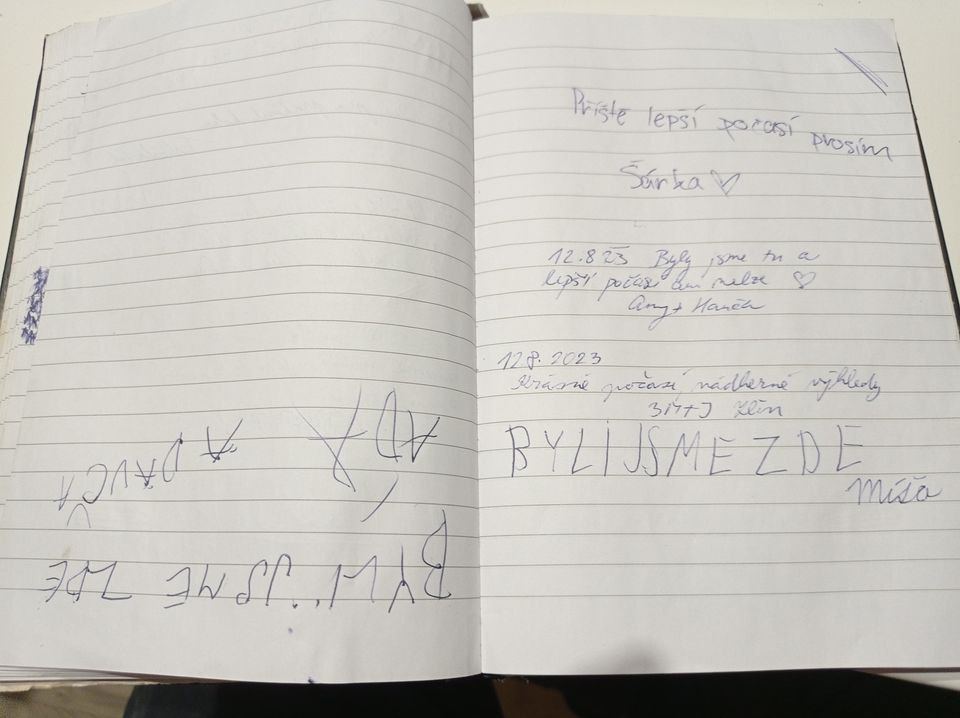 BYLI JSME ZDE
ADA
A
Příště lepší počasí prosím
Šárka ♡
12.8 23 Byly jsme tu a
lepší počasí ani nelze ♡
Amy + Hanča
12.8.2023
Krásné počasí, nádherné výhledy
3M+J Zlín
BYLI JSME ZDE
Míša